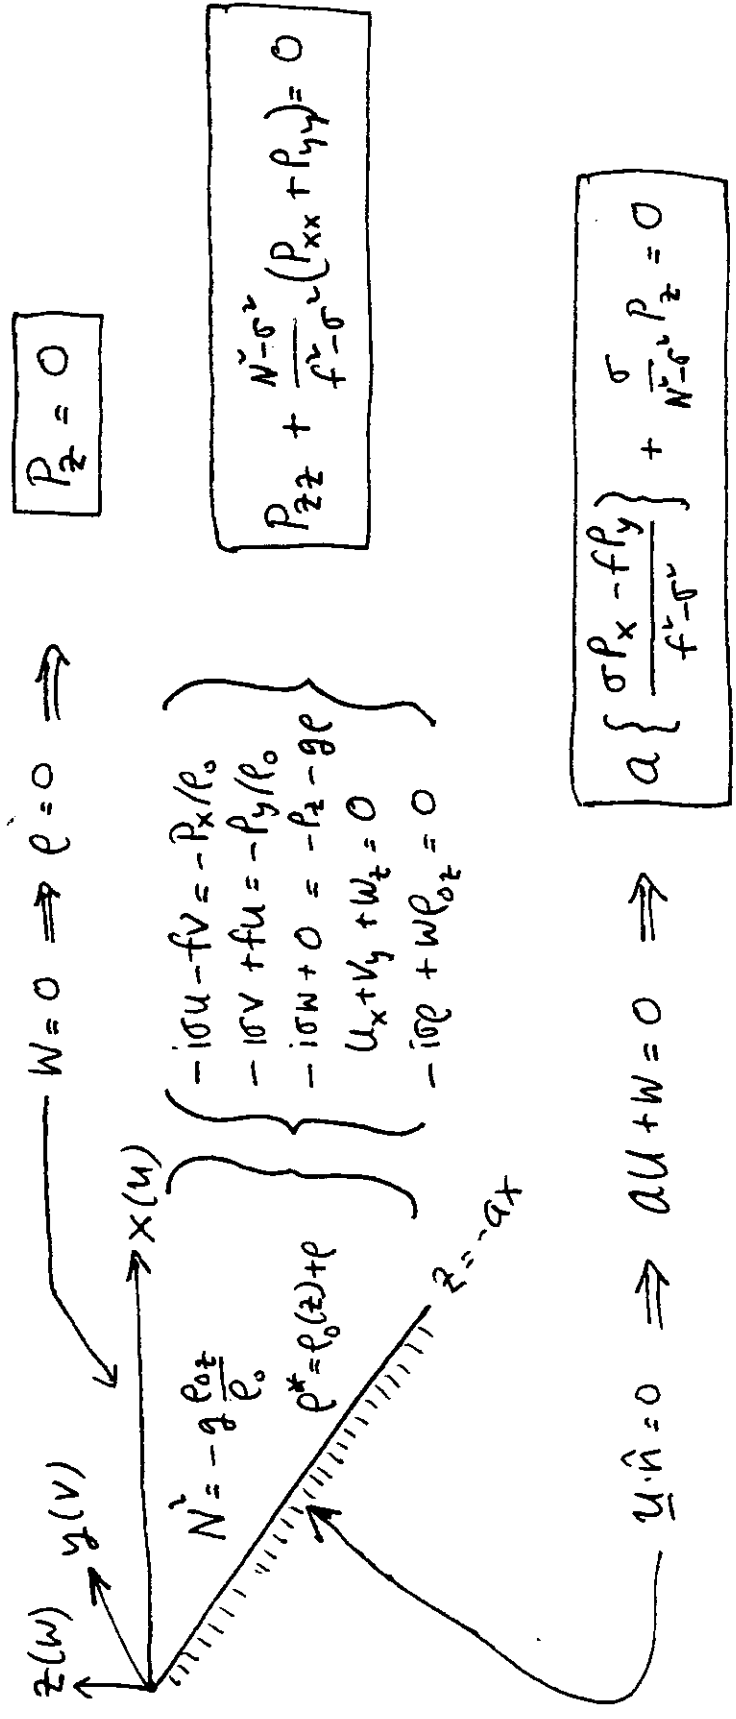 z(w)
y(v)
x(u)
W = 0 ⇒ ρ = 0 ⇒
P_z = 0
N² = -g ρ_{0z}/ρ_0
ρ* = ρ_0(z) + ρ
z = -ax
-iσu - fv = -P_x/ρ_0
-iσv + fu = -P_y/ρ_0
-iσw + 0 = -P_z - gρ
u_x + v_y + w_z = 0
-iσρ + wρ_{0z} = 0
P_{zz} + \frac{N²-σ²}{f²-σ²}(P_{xx} + P_{yy}) = 0
u·n̂ = 0 ⇒ au + w = 0 ⇒
a{\frac{σP_x - fP_y}{f²-σ²}} + \frac{σ}{N²-σ²} P_z = 0